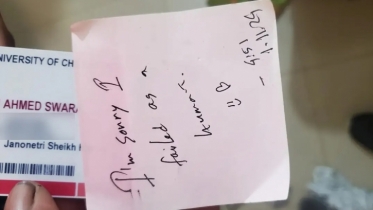 UNIVERSITY OF CH
AHMED SWARA
Janonetri Sheikh H
I'm sorry I
failed as a
human.
- Sisi